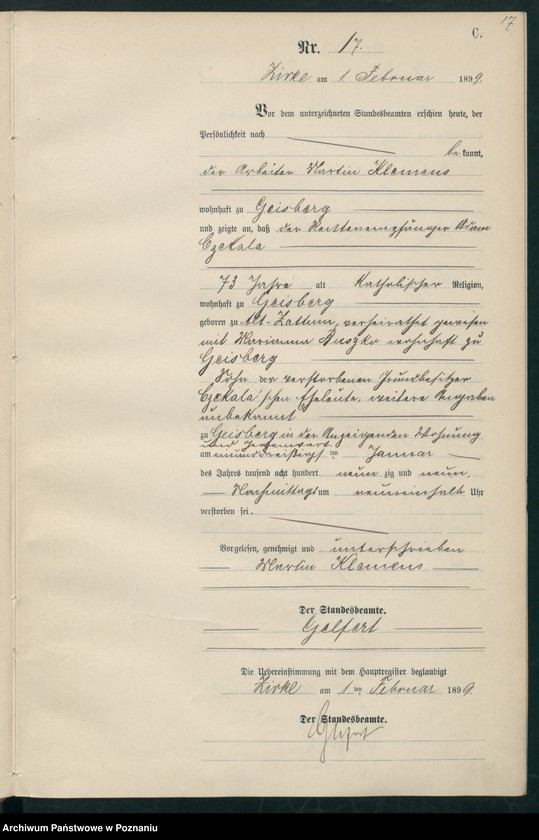 17
C.
Nr. 17.
Zirke am 1 Februar 1899.
Vor dem unterzeichneten Standesbeamten erschien heute, der
Persönlichkeit nach
bekannt,
der Arbeiter Martin Klemens
wohnhaft zu Geisberg
und zeigte an, daß der Rentenempfänger Adam
Czekala
73 Jahre alt Katholischer Religion,
wohnhaft zu Geisberg
geboren zu Alt-Zattum, verheirathet gewesen
mit Marianna Buszko wohnhaft zu
Geisberg
Sohn der verstorbenen Grundbesitzer
Czekala'schen Eheleute, weitere Angaben
unbekannt
zu Geisberg in der Anzeigenden Wohnung
und Gegenwart
am einunddreißigsten Januar
des Jahres tausend acht hundert neunzig und neun,
Nachmittags um neuneinhalb Uhr
verstorben sei.
Vorgelesen, genehmigt und unterschrieben
Martin Klemens
Der Standesbeamte.
Gelfert
Die Uebereinstimmung mit dem Hauptregister beglaubigt
Zirke am 1 ten Februar 1899.
Der Standesbeamte.
Gelfert
Archiwum Państwowe w Poznaniu